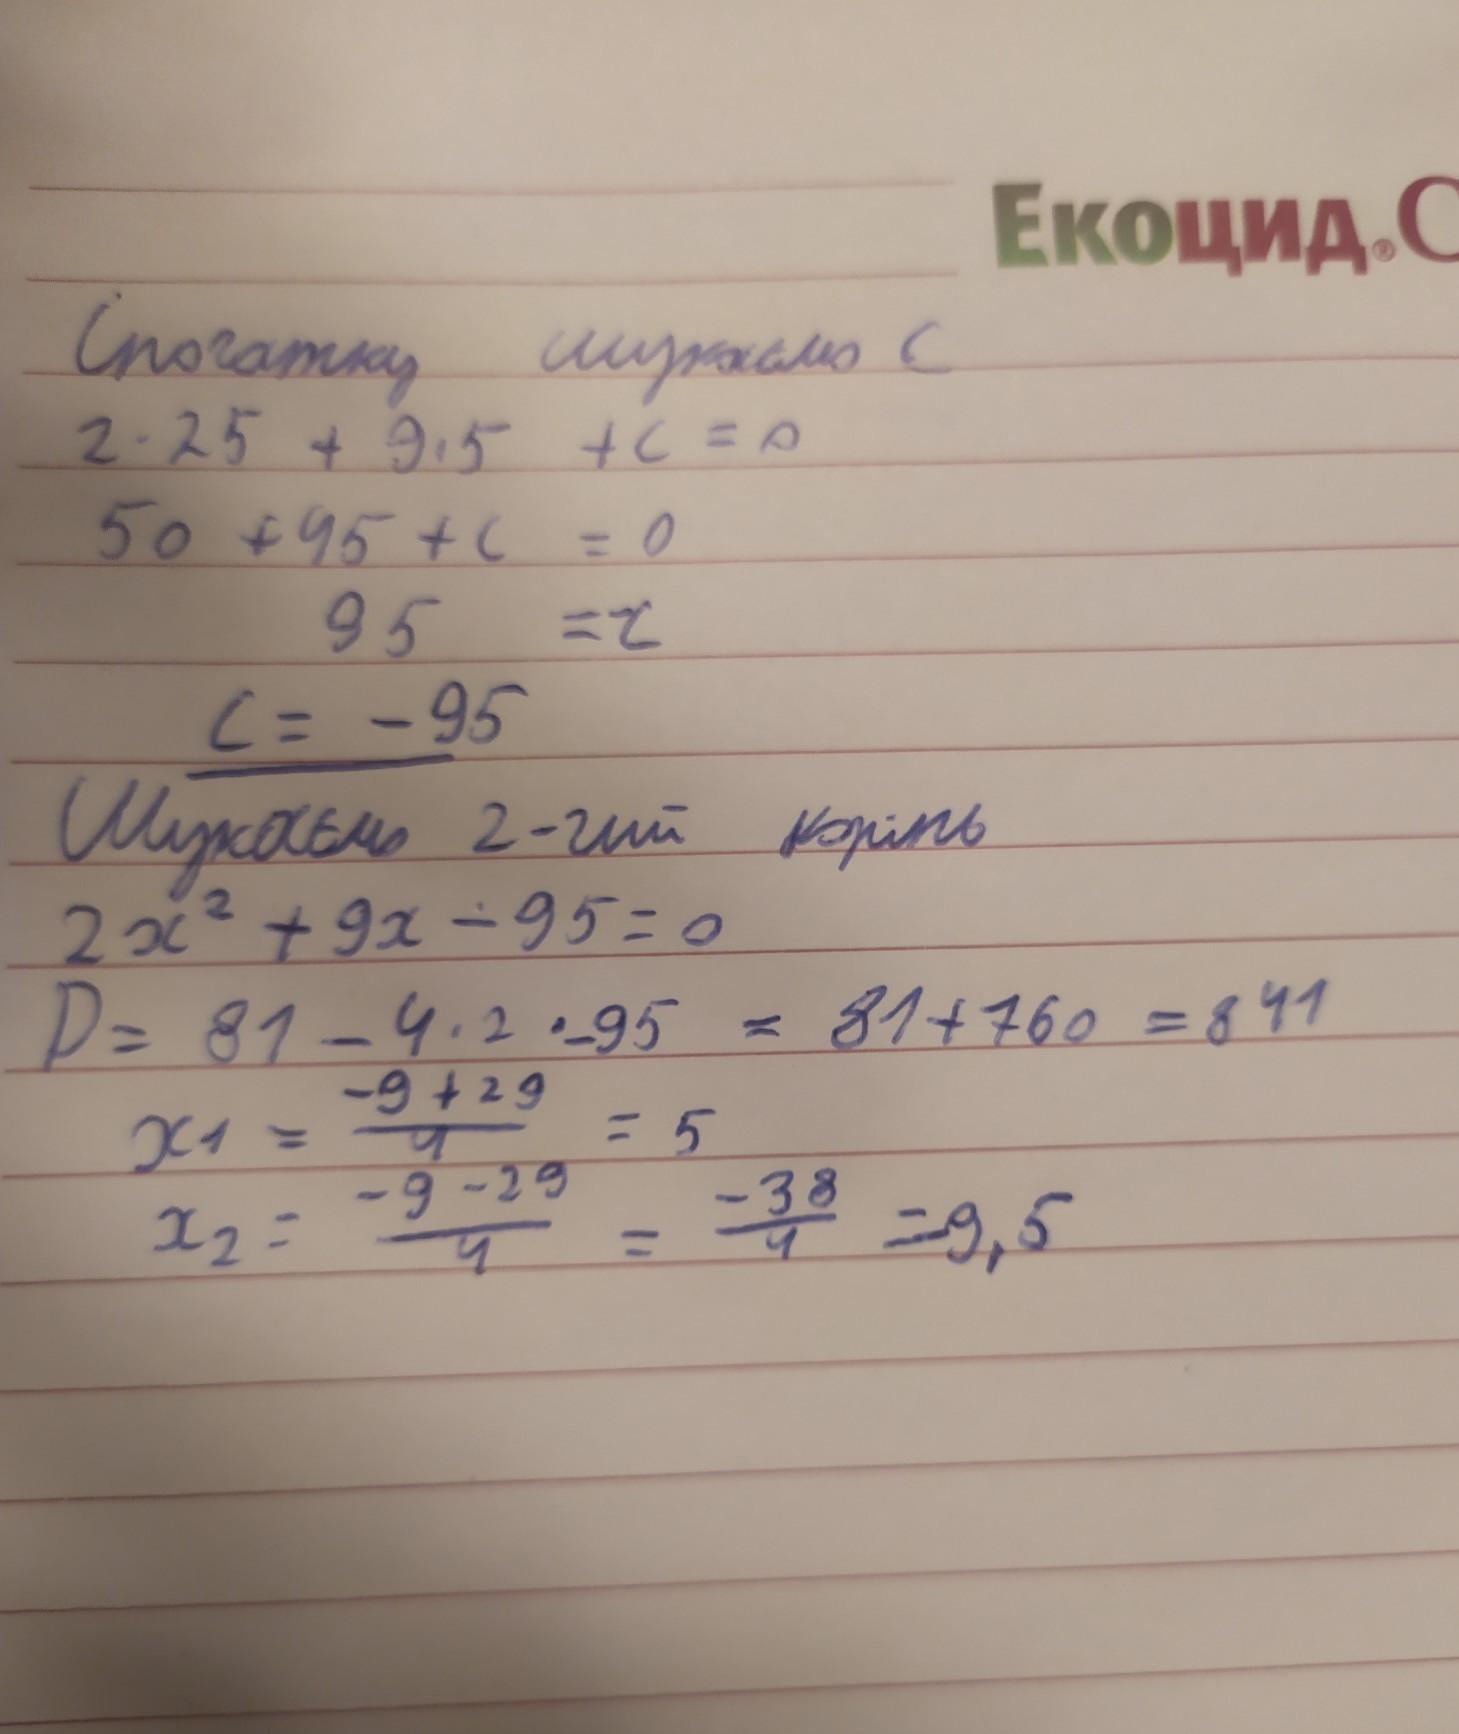 Екоцид.
Спочатку шукаємо C
2·25 + 9·5 + c = 0
50 + 45 + c = 0
95 = c
C = -95
Шукаємо 2-гий корінь
2x² + 9x - 95 = 0
D = 81 - 4·2·-95 = 81 + 760 = 841
x1 = -9 + 29 / 4 = 5
x2 = -9 - 29 / 4 = -38 / 4 = -9,5